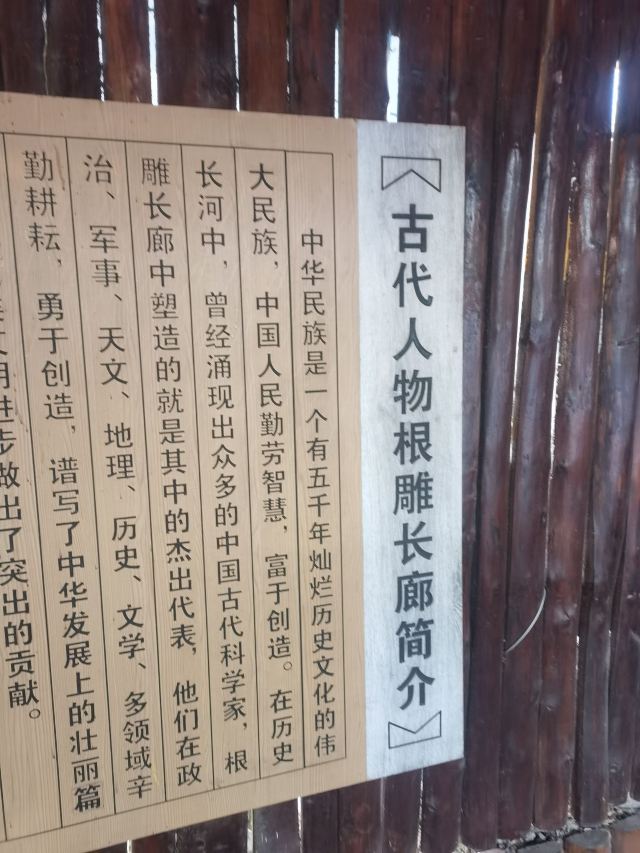 【古代人物根雕长廊简介】
中华民族是一个有五千年灿烂历史文化的伟
大民族，中国人民勤劳智慧，富于创造。在历史
长河中，曾经涌现出众多的中国古代科学家，根
雕长廊中塑造的就是其中的杰出代表，他们在政
治、军事、天文、地理、历史、文学、多领域辛
勤耕耘，勇于创造，谱写了中华发展上的壮丽篇
明进步做出了突出的贡献。